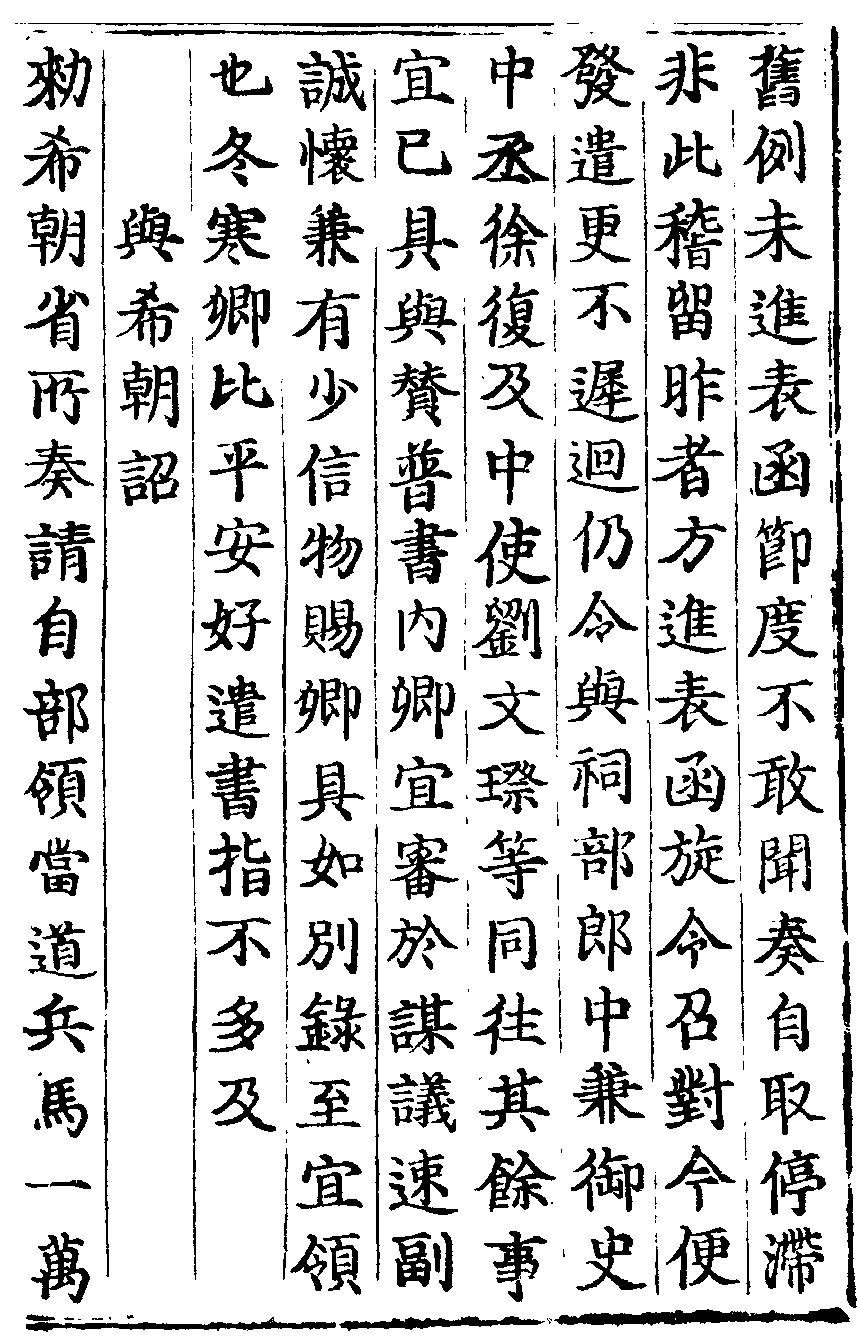 舊例未進表函節度不敢聞奏自取停滯
非此稽留昨者方進表函旋令召對今便
發遣更不遲迴仍令與祠部郎中兼御史
中丞徐復及中使劉文璨等同往其餘事
宜已具與賛普書内卿宜審於謀議速副
誠懷兼有少信物賜卿具如別錄至宜領
也冬寒卿比平安好遣書指不多及
與希朝詔
勑希朝省所奏請自部領當道兵馬一萬